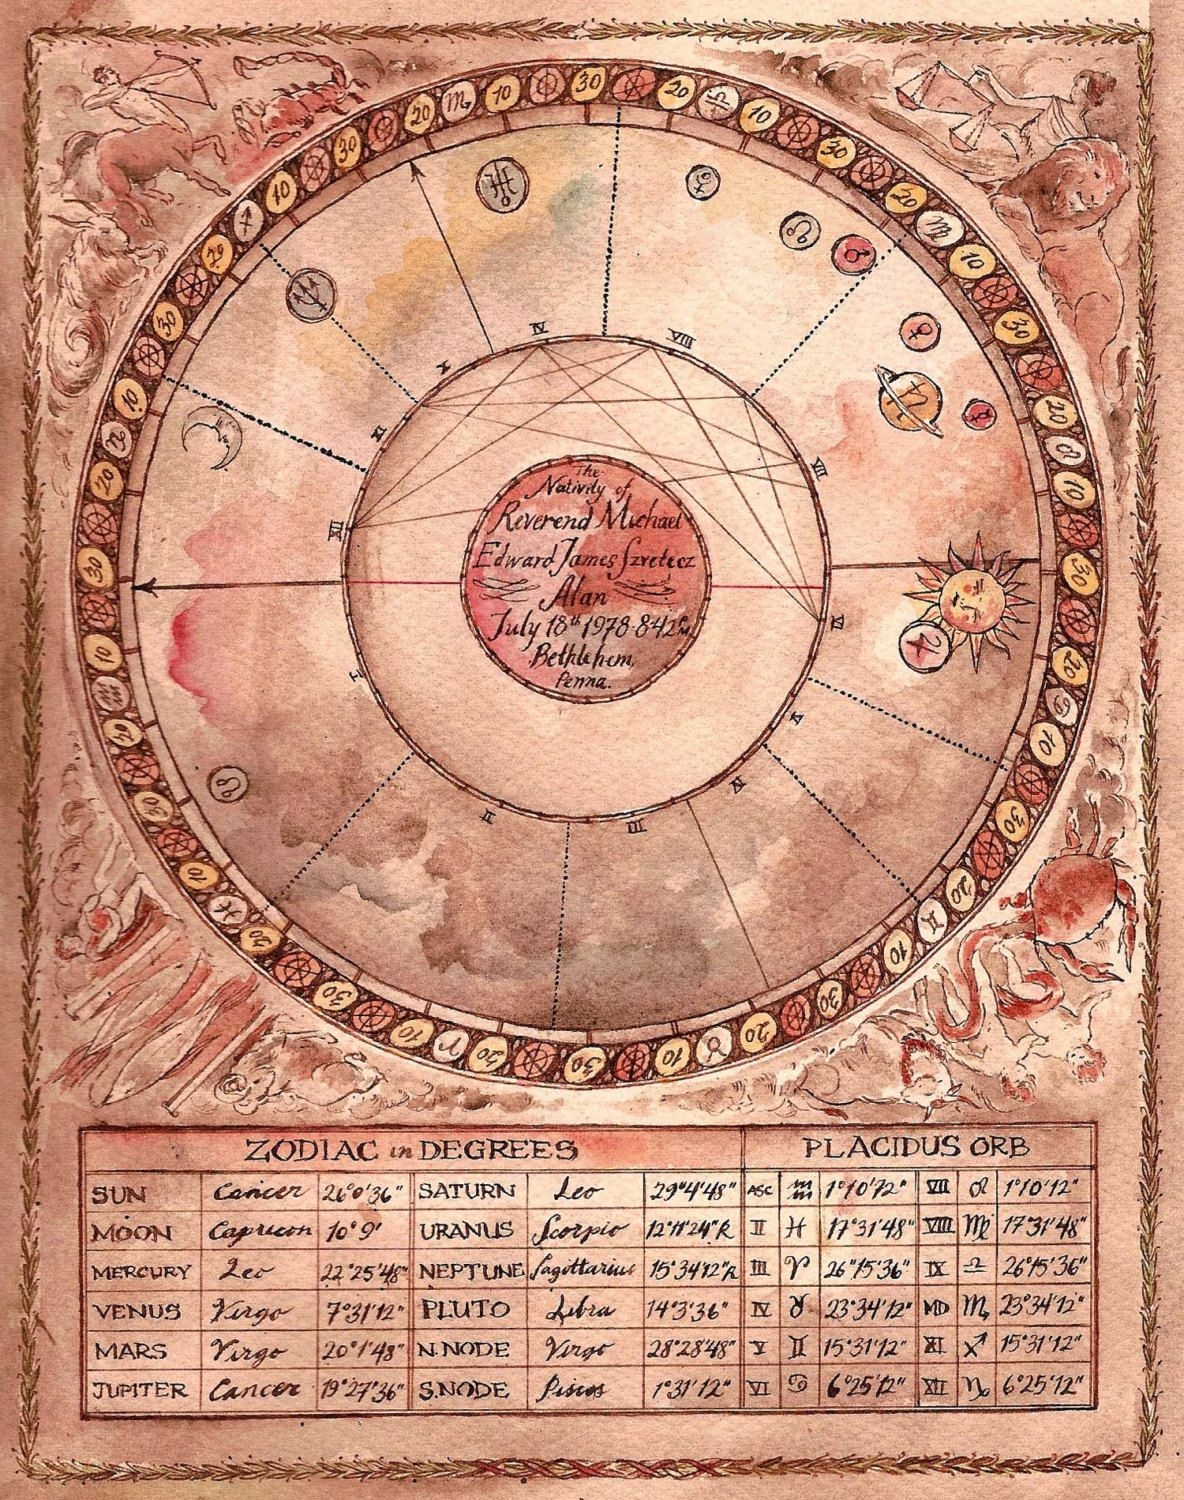 The
Nativity of
Reverend Michael
Edward James Szretecz
Alan
July 18th 1978 · 8·42 PM
Bethlehem,
Penna.
30 20 ♎ 10 30 20 ♍ 10 30 20 ♌ 10 30 20 ♋ 10 30 20 ♊ 10 30 20 ♉ 10 30 20 ♈ 10 30 20 ♓ 10 20 ♒ 10 30 20 ♑ 10 30 20 ♐ 10 30 20 ♏ 10
I
II
III
IV
V
VI
VII
VIII
IX
X
XII
ZODIAC in DEGREES PLACIDUS ORB
SUN Cancer 26°0'36" SATURN Leo 29°4'48" ASC ♒ 1°10'12" VII ♌ 1°10'12"
MOON Capricorn 10°9' URANUS Scorpio 12°11'24"R II ♓ 17°31'48" VIII ♍ 17°31'48"
MERCURY Leo 22°25'48" NEPTUNE Sagittarius 15°34'12"R III ♈ 26°15'36" IX ♎ 26°15'36"
VENUS Virgo 7°31'12" PLUTO Libra 14°3'36" IV ♉ 23°34'12" MD ♏ 23°34'12"
MARS Virgo 20°1'48" N.NODE Virgo 28°28'48" V ♊ 15°31'12" XI ♐ 15°31'12"
JUPITER Cancer 19°27'36" S.NODE Pisces 1°31'12" VI ♋ 6°25'12" XII ♑ 6°25'12"